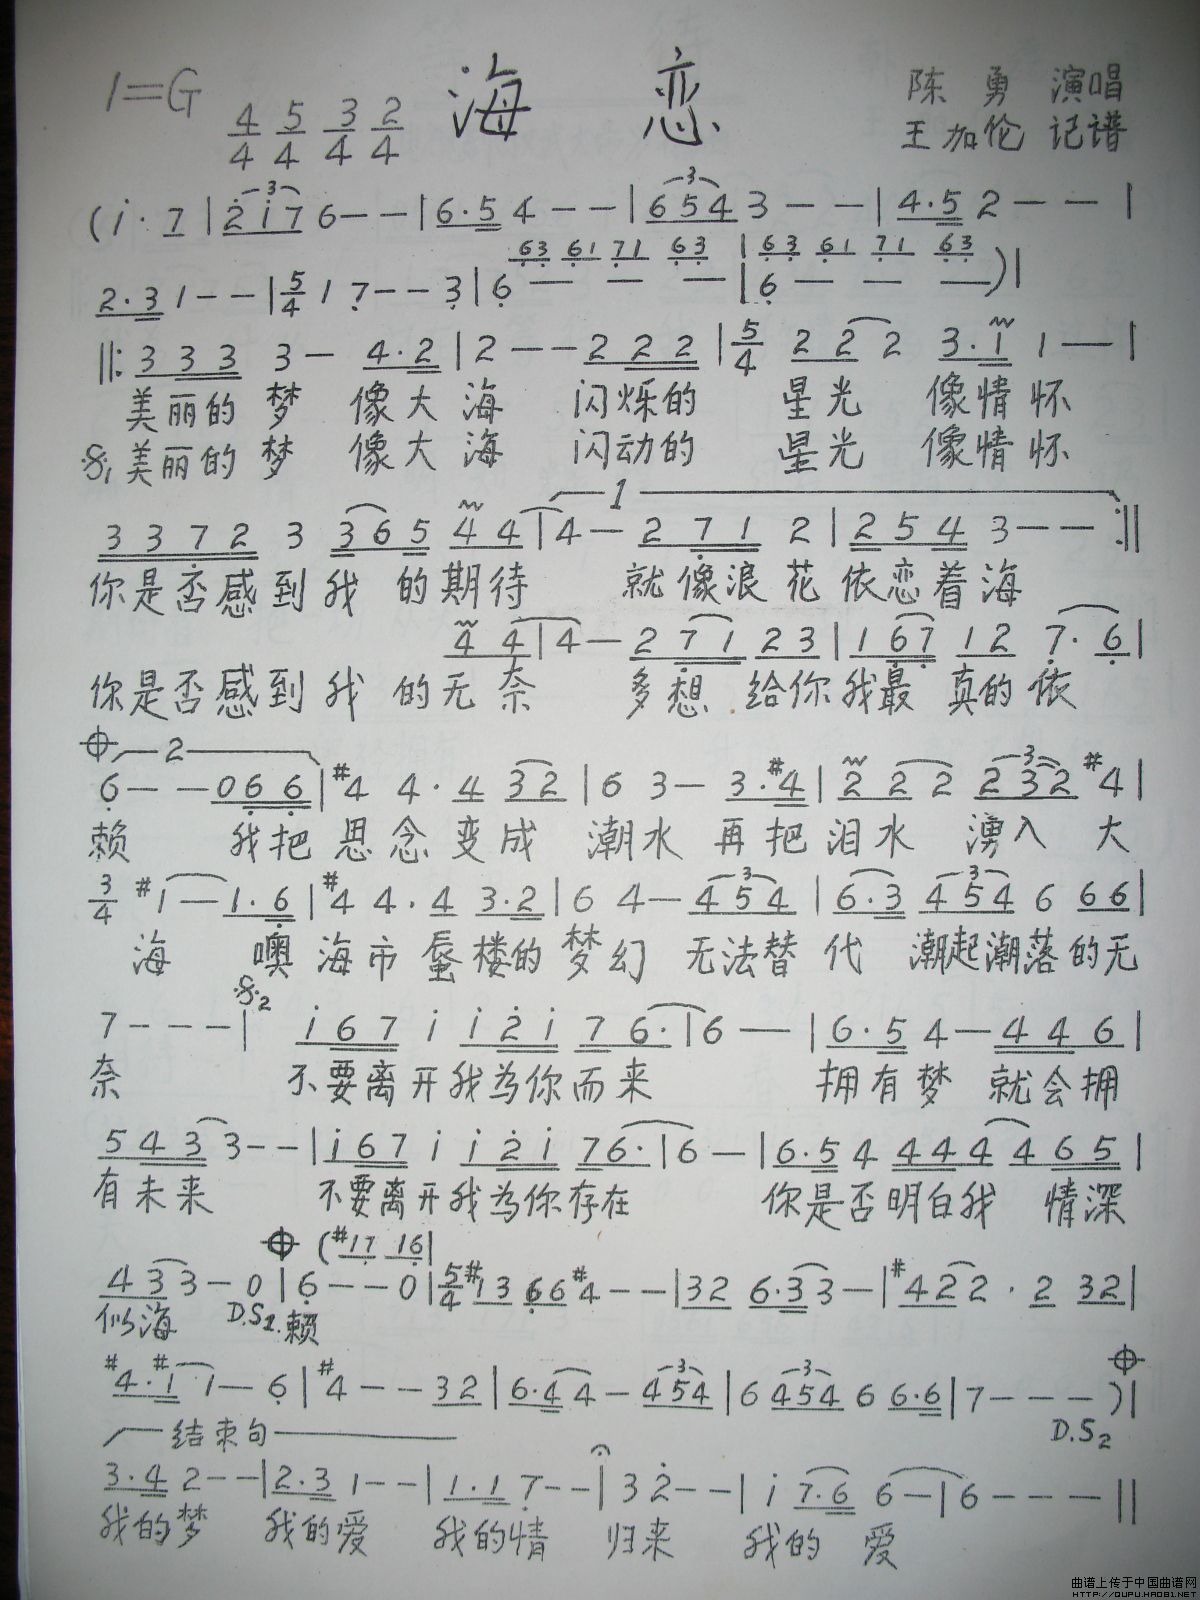 1=G 4/4 5/4 3/4 2/4 海 恋 陈 勇 演唱
王加伦 记谱
(i· 7 | 2i7 6-- | 6·5 4-- | 654 3-- | 4·5 2-- |
63 61 71 63 | 63 61 71 63
2·3 1-- | 5/4 1 7--3 | 6 - - - | 6 - - - ) |
‖: 333 3- 4·2 | 2--222 | 5/4 22 2 3·1 1- |
美丽的 梦 像大 海 闪烁的 星光 像情怀
美丽的 梦 像大 海 闪动的 星光 像情怀
1
3372 3 365 44 | 4- 271 2 | 254 3-- :‖
你是否感到我 的期待 就像浪花依恋着海
44 | 4- 271 23 | 167 12 7·6 |
你是否感到我 的无奈 多想 给你我最 真的依
2
6--066 | #4 4·4 32 | 6 3- 3·#4 | 2 2 2 232 #4 |
赖 我把思念变成 潮水 再把泪水 湧入 大
3/4 #1-1·6 | #4 4·4 3·2 | 6 4- 454 | 6·3 454 6 66 |
海 噢 海市蜃楼的梦幻 无法替 代 潮起潮落的无
7--- | i67 i i2i 76· | 6- | 6·5 4-446 |
奈 不要离开我为你而来 拥有梦 就会拥
543 3-- | i67 i i2i 76· | 6- | 6·5 4 444 465 |
有未来 不要离开我为你存在 你是否明白我 情深
(#17 16 |
433-0 | 6--0 | 5/4 #13 66 #4-- | 32 6·33- | #422·2 32 |
似海 D.S1. 赖
#4·#1 1- 6 | #4--32 | 6·44- 454 | 6 454 6 6·6 | 7--- ) |
D.S2
结束句
3·4 2-- | 2·3 1-- | 1·1 7-- | 3 2-- | i 7·6 6- | 6--- ‖
我的梦 我的爱 我的情 归来 我的 爱
曲谱上传于中国曲谱网
HTTP://QUPU.HAO81.NET